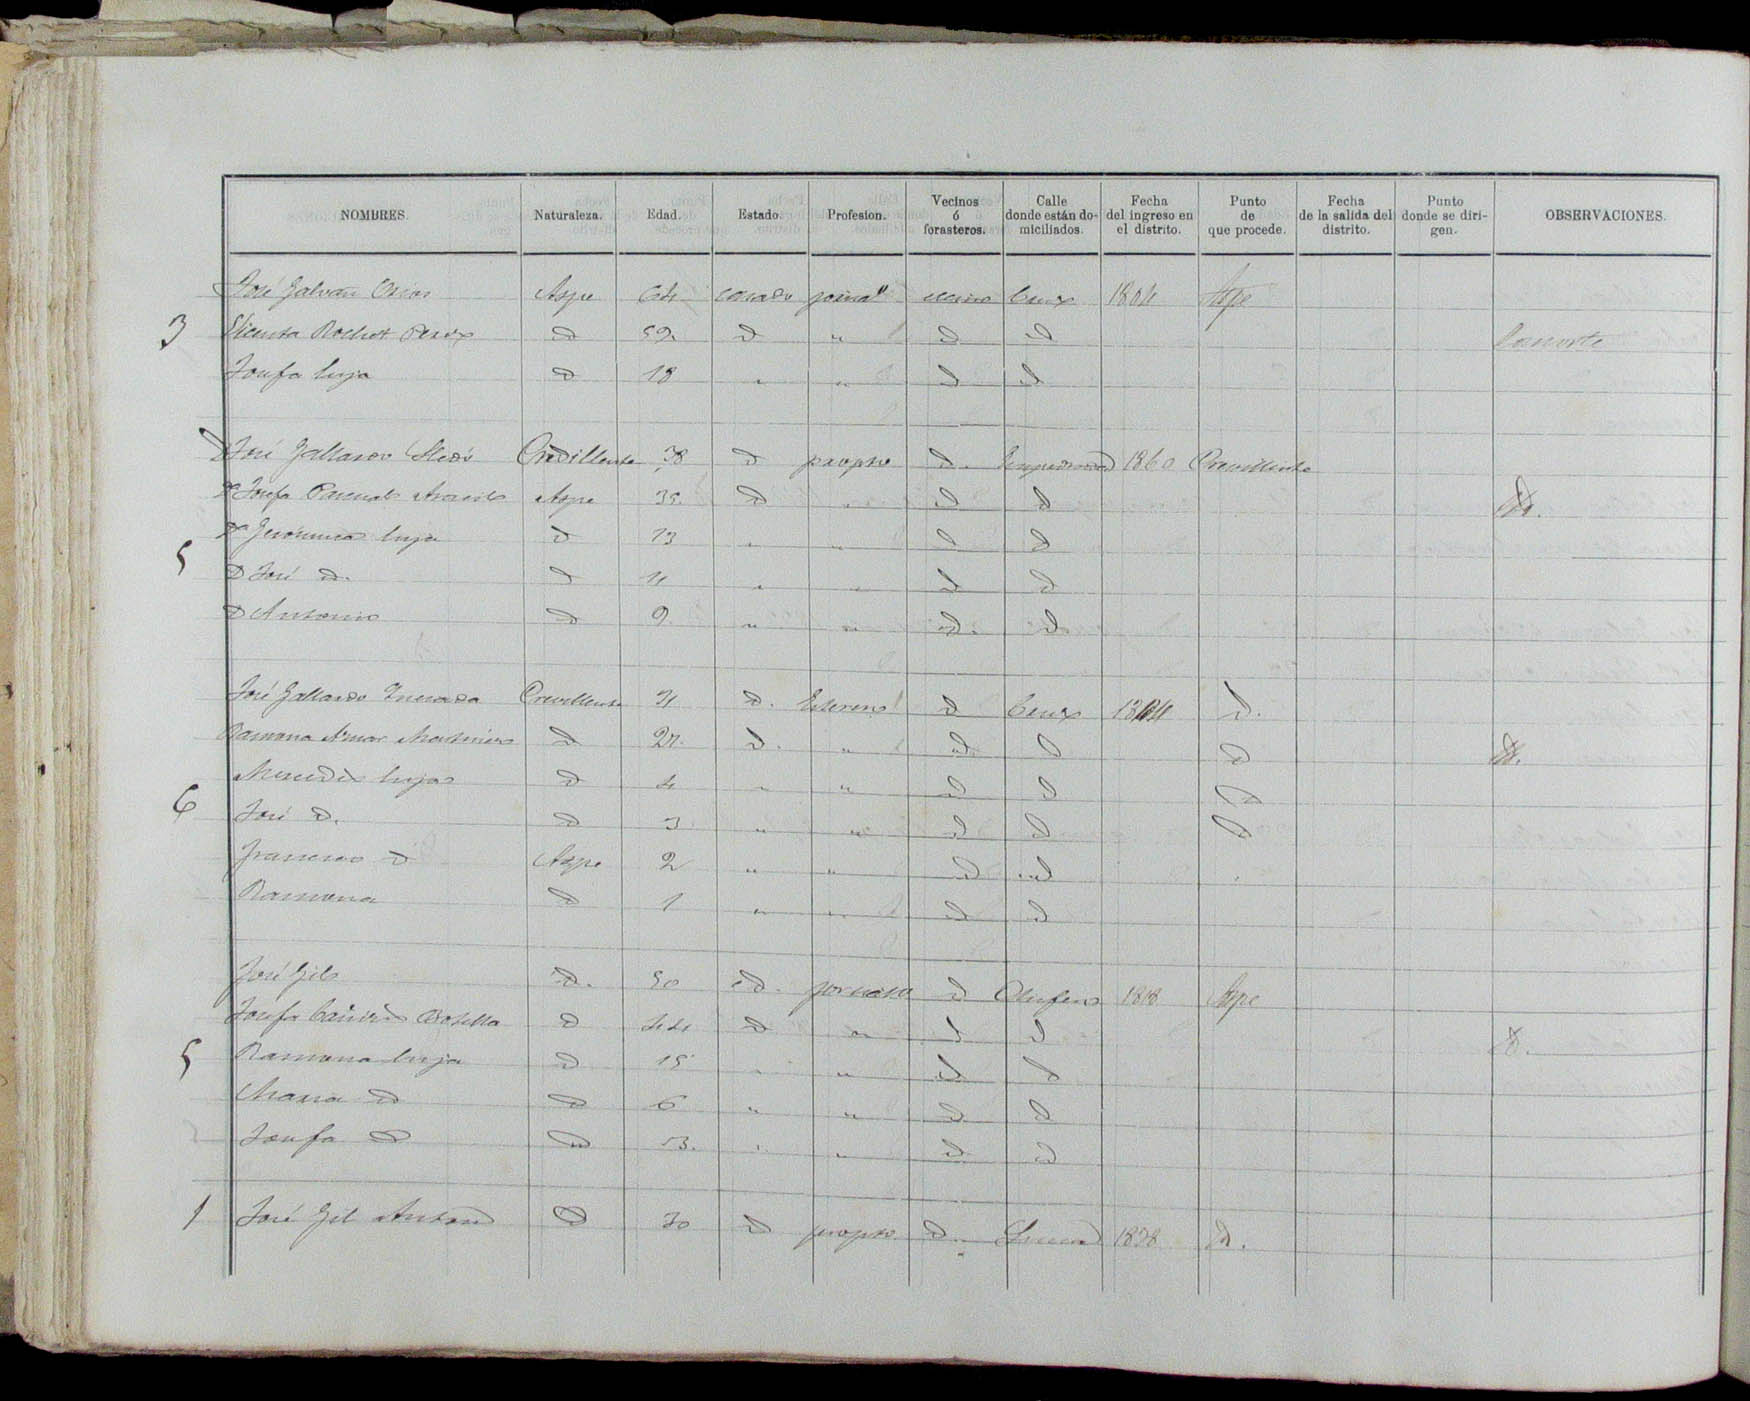 NOMBRES. Naturaleza. Edad. Estado. Profesion. Vecinos ó forasteros. Calle donde están domiciliados. Fecha del ingreso en el distrito. Punto de que procede. Fecha de la salida del distrito. Punto donde se dirigen. OBSERVACIONES.
José Galvañ Aspe 64 casado jorna" vecino Cruz 1804 Aspe
3 Vicenta Perez d 59 d " d id
Josefa hija d 18 " " d id
D José Gallardo Crevillente 38 d propro d. 1860 Crevillente
Da Josefa Pascual Aspe 35 d " d d
5 Da hija d 13 " " d d
D José d. d 11 " " d d
D Antonio d 9 " " id. id.
José Gallardo Crevillente 31 d. Esterero d Cruz 18 d.
Ramona Martinez d 27. d. " id. d d
Mercedes hija d 4 " " d d d
6 José d. d 3 " " d d d
Francisco d Aspe 2 " " id id
Ramona d 1 " " d d
José Gil d. 50 id. d 1818 Aspe
Josefa Botella d 44 d " d d
5 Ramona hija d 15 " " d d
Maria d d 6 " " d d
Josefa d d 13. " " d id
1 José Gil Anton d 30 d propro d. 1838 d.